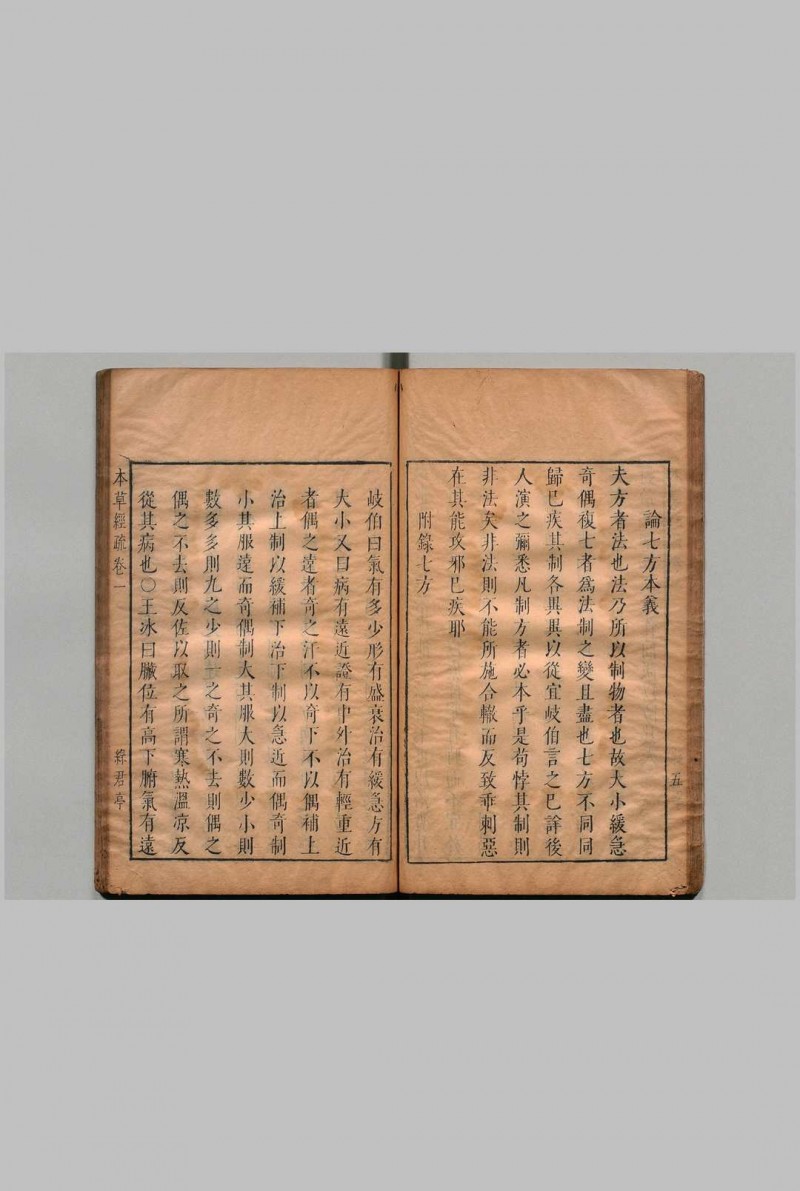 論七方本義
夫方者法也法乃所以制物者也故大小緩急
奇偶復七者為法制之變且盡也七方不同同
歸已疾其制各異異以從宜岐伯言之已詳後
人演之彌悉凡制方者必本乎是苟悖其制則
非法矣非法則不能所施合轍而反致乖剌惡
在其能攻邪已疾耶
附錄七方
五
岐伯曰氣有多少形有盛衰治有緩急方有
大小又曰病有遠近證有中外治有輕重近
者偶之遠者奇之汗不以奇下不以偶補上
治上制以緩補下治下制以急近而偶奇制
小其服遠而奇偶制大其服大則數少小則
數多多則九之少則一之奇之不去則偶之
偶之不去則反佐以取之所謂寒熱溫凉反
從其病也○王冰曰臟位有高下腑氣有遠
本草經疏卷一
綠君亭